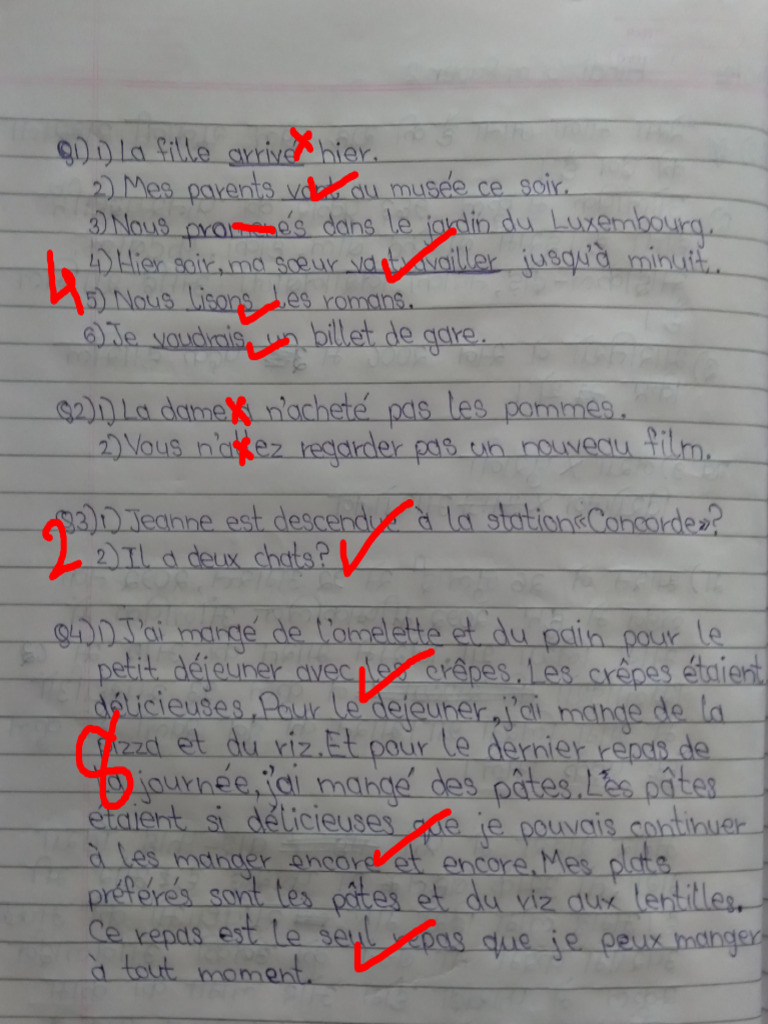 Q1) 1) La fille arrivé hier.
2) Mes parents vont au musée ce soir.
3) Nous dans le jardin du Luxembourg.
4) Hier soir, ma sœur va travailler jusqu'à minuit.
4
5) Nous lisons les romans.
6) Je voudrais un billet de gare.
Q2) 1) La dame n'acheté pas les pommes.
2) Vous n'allez regarder pas un nouveau film.
Q3) 1) Jeanne est descendue à la station «Concorde»?
2
2) Il a deux chats?
Q4) 1) J'ai mangé de l'omelette et du pain pour le
petit déjeuner avec les crêpes. Les crêpes étaient
délicieuses. Pour le dejeuner, j'ai mange de la
8
pizza et du riz. Et pour le dernier repas de
la journée, j'ai mangé des pâtes. Les pâtes
étaient si délicieuses que je pouvais continuer
à les manger encore et encore. Mes plats
préférés sont les pâtes et du riz aux lentilles.
Ce repas est le seul repas que je peux manger
à tout moment.